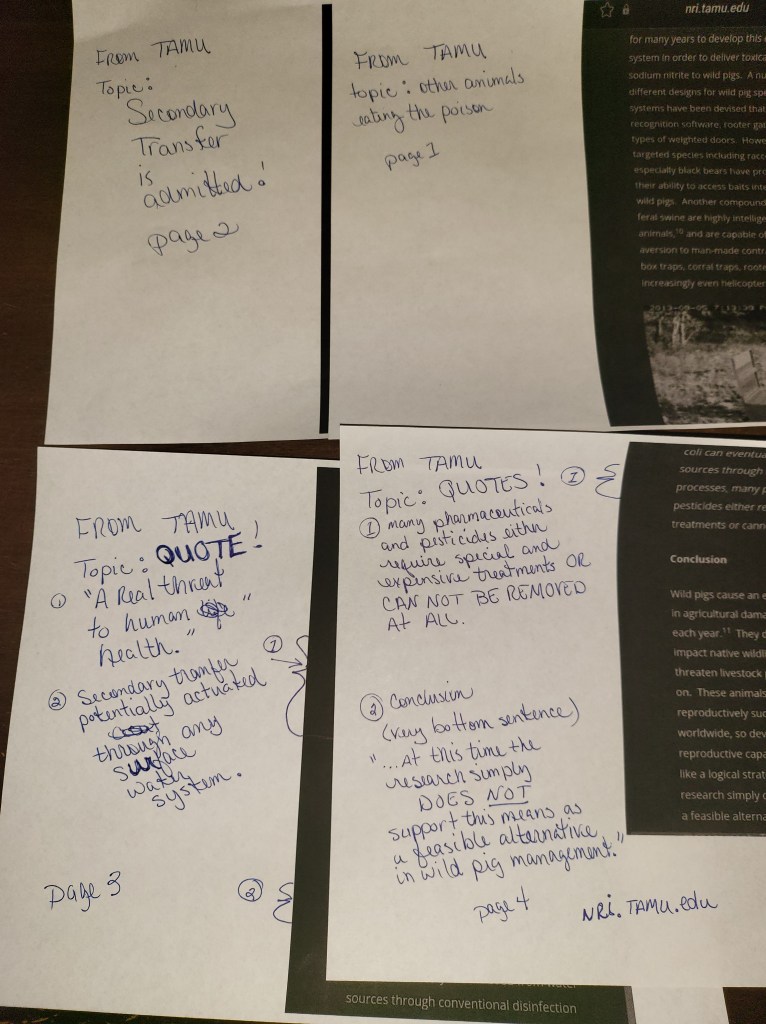 FROM TAMU
Topic:
Secondary
Transfer
is
admitted!
page 2
FROM TAMU
topic: other animals
eating the poison
page 1
nri.tamu.edu
for many years to develop this
system in order to deliver toxica
sodium nitrite to wild pigs. A nu
different designs for wild pig spe
systems have been devised that
recognition software, rooter ga
types of weighted doors. Howe
targeted species including racc
especially black bears have pro
their ability to access baits inte
wild pigs. Another compound
feral swine are highly intellige
animals,¹⁰ and are capable of
aversion to man-made contr
box traps, corral traps, roote
increasingly even helicopter
FROM TAMU
Topic: QUOTE!
① "A Real threat
to human "
health."
② Secondary tranfer
potentially actuated
through any
surface
water
system.
①
page 3
②
FROM TAMU
Topic: QUOTES! ①
① many pharmaceuticals
and pesticides either
require special and
expensive treatments OR
CAN NOT BE REMOVED
At ALL.
② Conclusion
(very bottom sentence)
"...At this time the
research simply
DOES NOT
support this means as
a feasible alternative
in wild pig management."
page 4
NRi.TAMU.edu
coli can eventua
sources through
processes, many p
pesticides either re
treatments or cann
Conclusion
Wild pigs cause an e
in agricultural dama
each year.¹¹ They c
impact native wildli
threaten livestock
on. These animals
reproductively suc
worldwide, so dev
reproductive capa
like a logical strat
research simply
a feasible alterna
sources through conventional disinfection